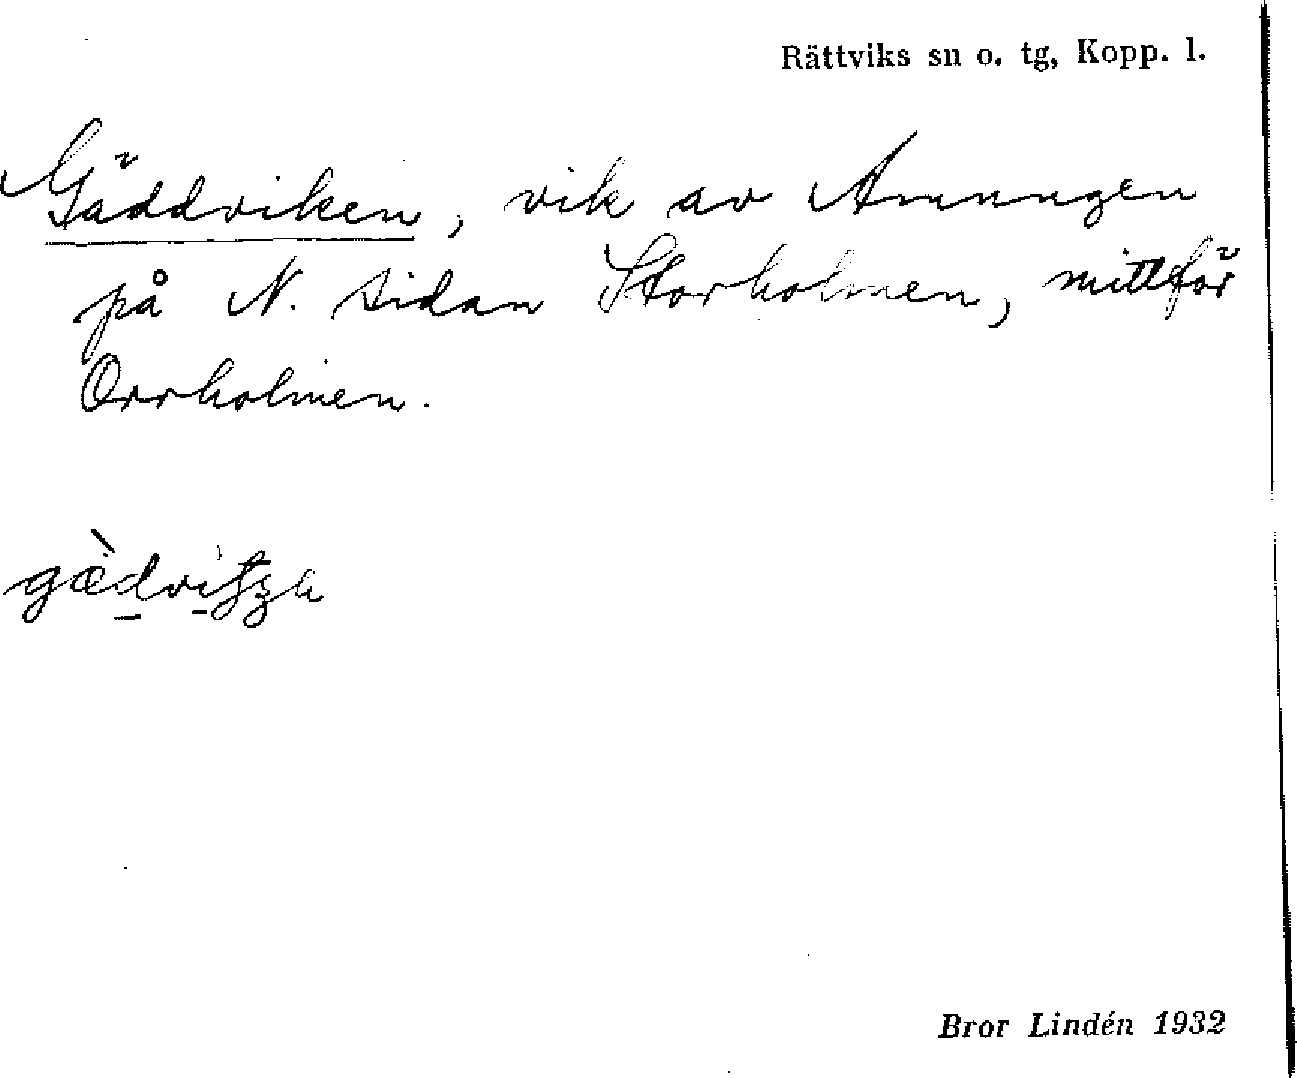 Rättviks sn o. tg, Kopp. l.
Gäddviken, vik av Amungen
på N. sidan Storholmen, mittför
Orrholmen.
Bror Lindén 1932